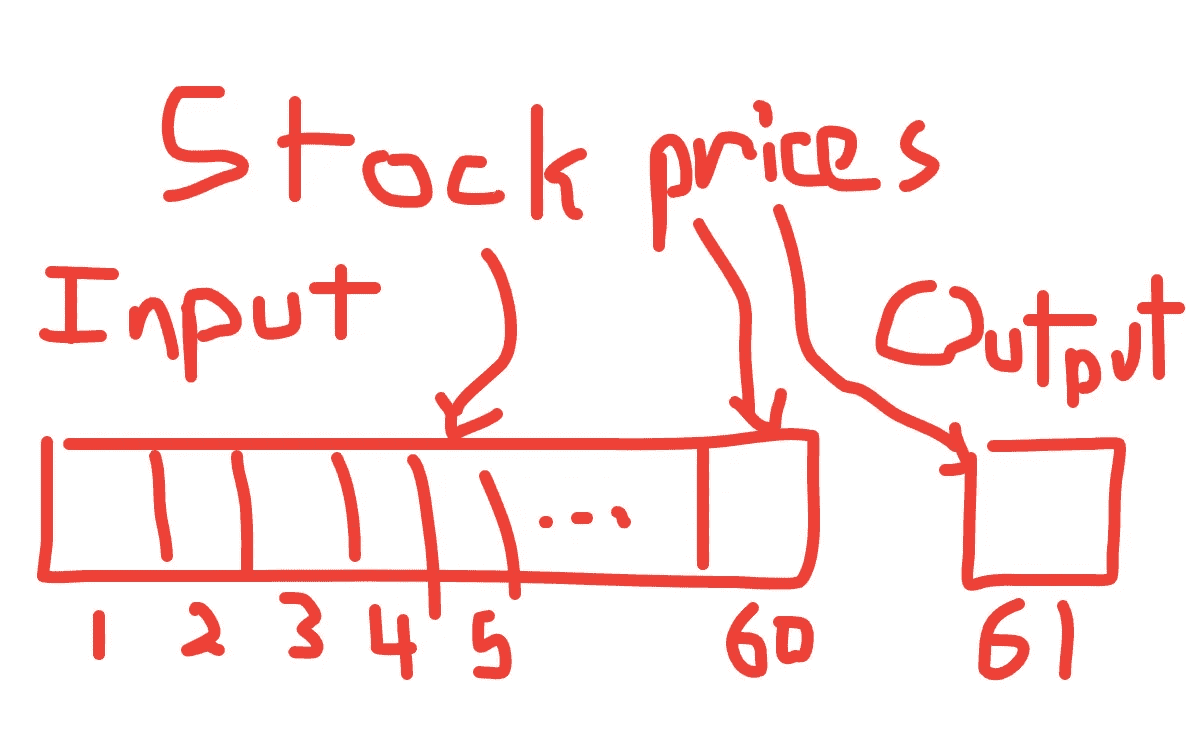 Stock prices
Input
Output
1 2 3 4 5 ... 60 61